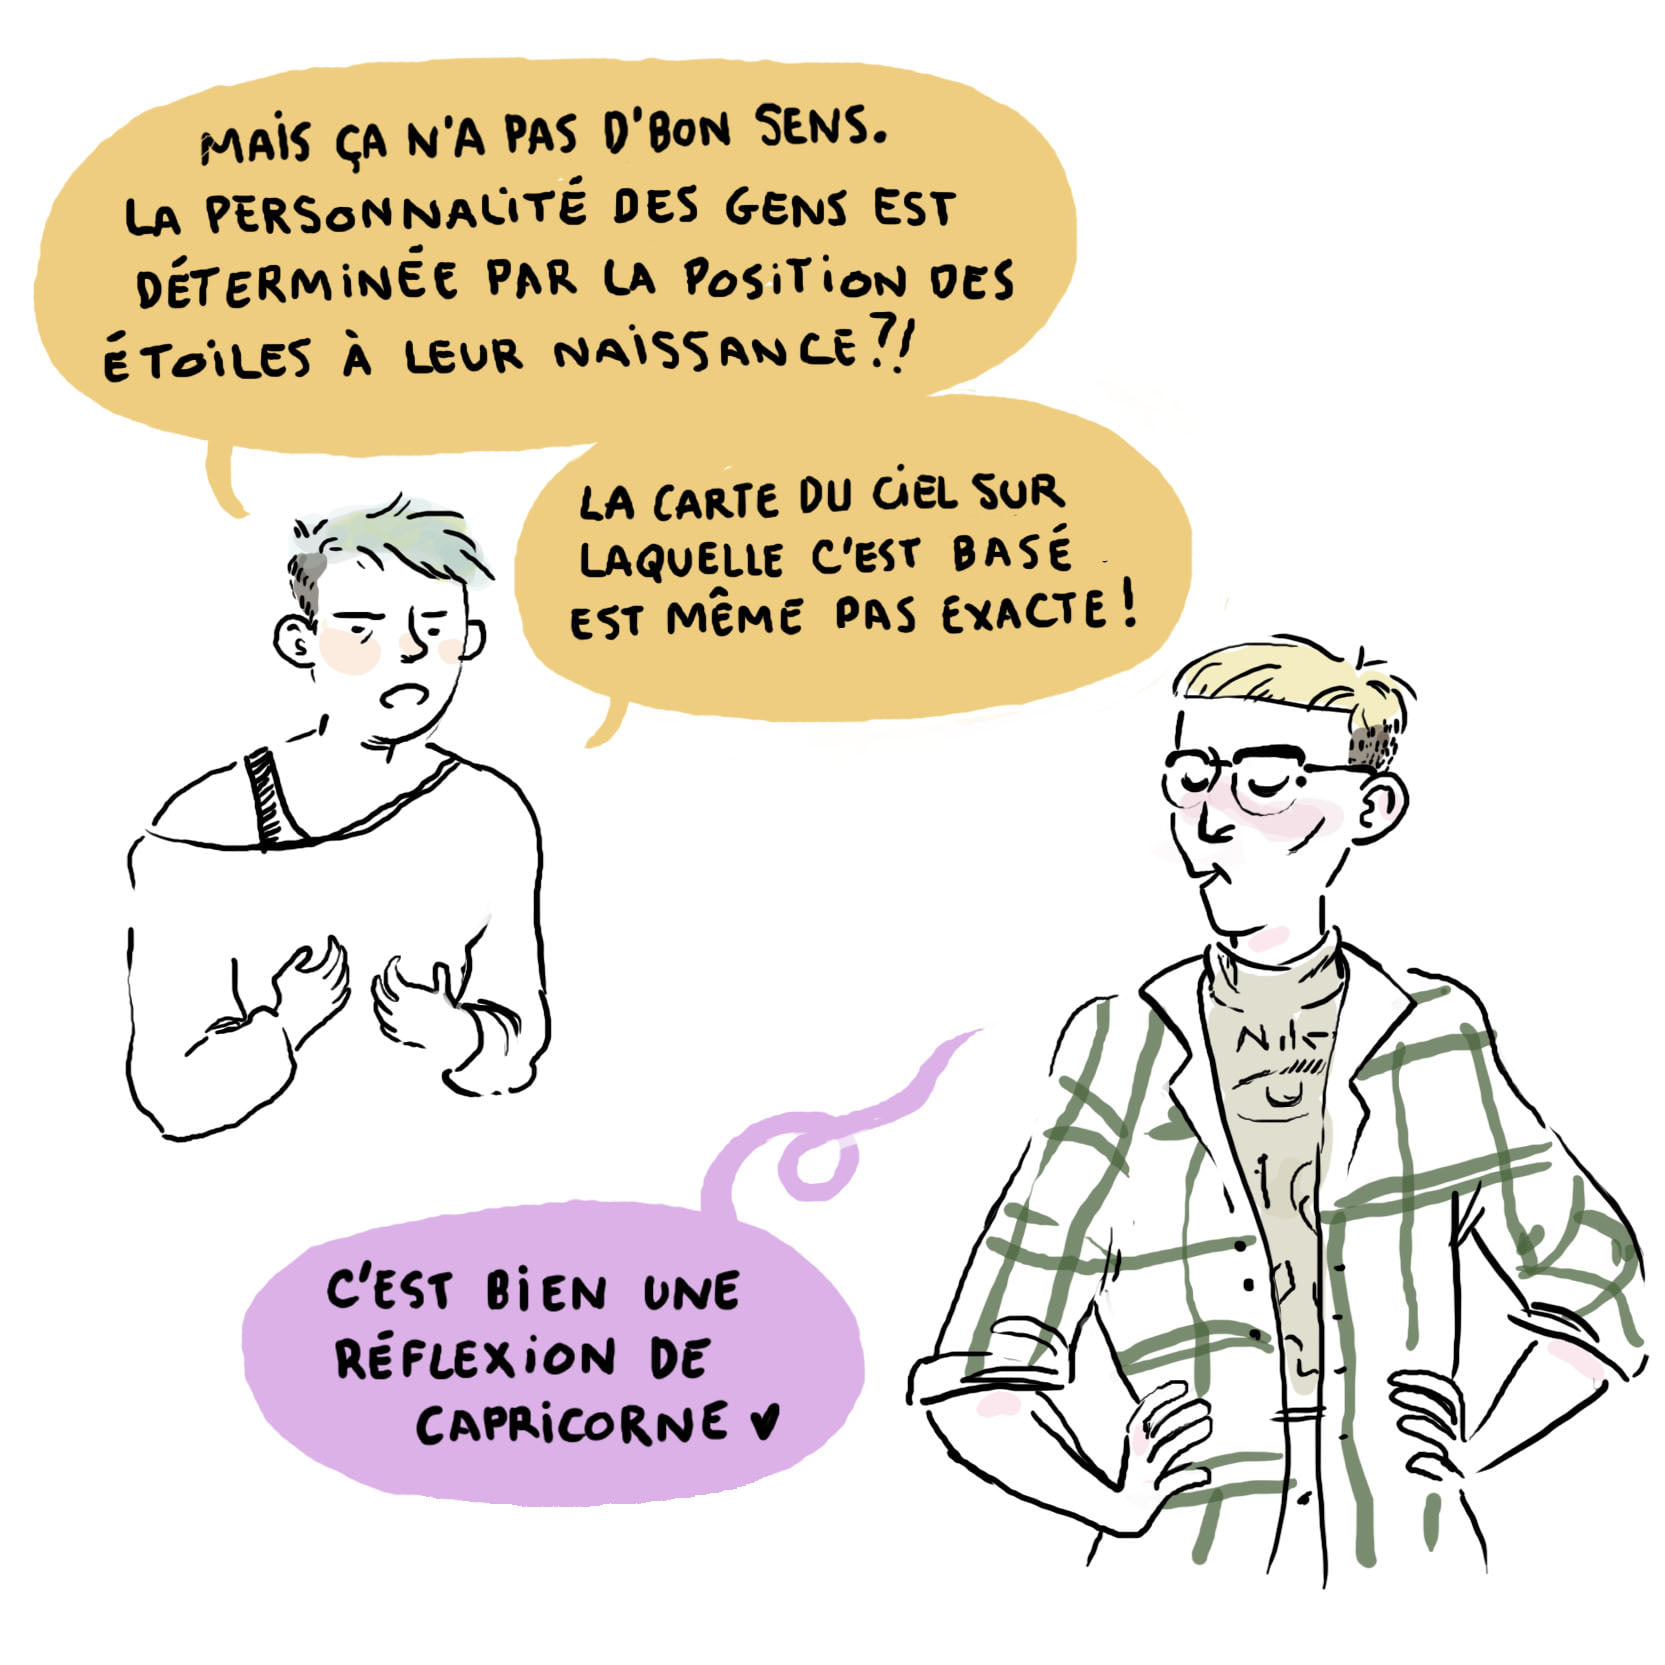 MAIS ÇA N'A PAS D'BON SENS.
LA PERSONNALITÉ DES GENS EST
DÉTERMINÉE PAR LA POSITION DES
ÉTOILES À LEUR NAISSANCE?!
LA CARTE DU CIEL SUR
LAQUELLE C'EST BASÉ
EST MÊME PAS EXACTE!
C'EST BIEN UNE
RÉFLEXION DE
CAPRICORNE ♥